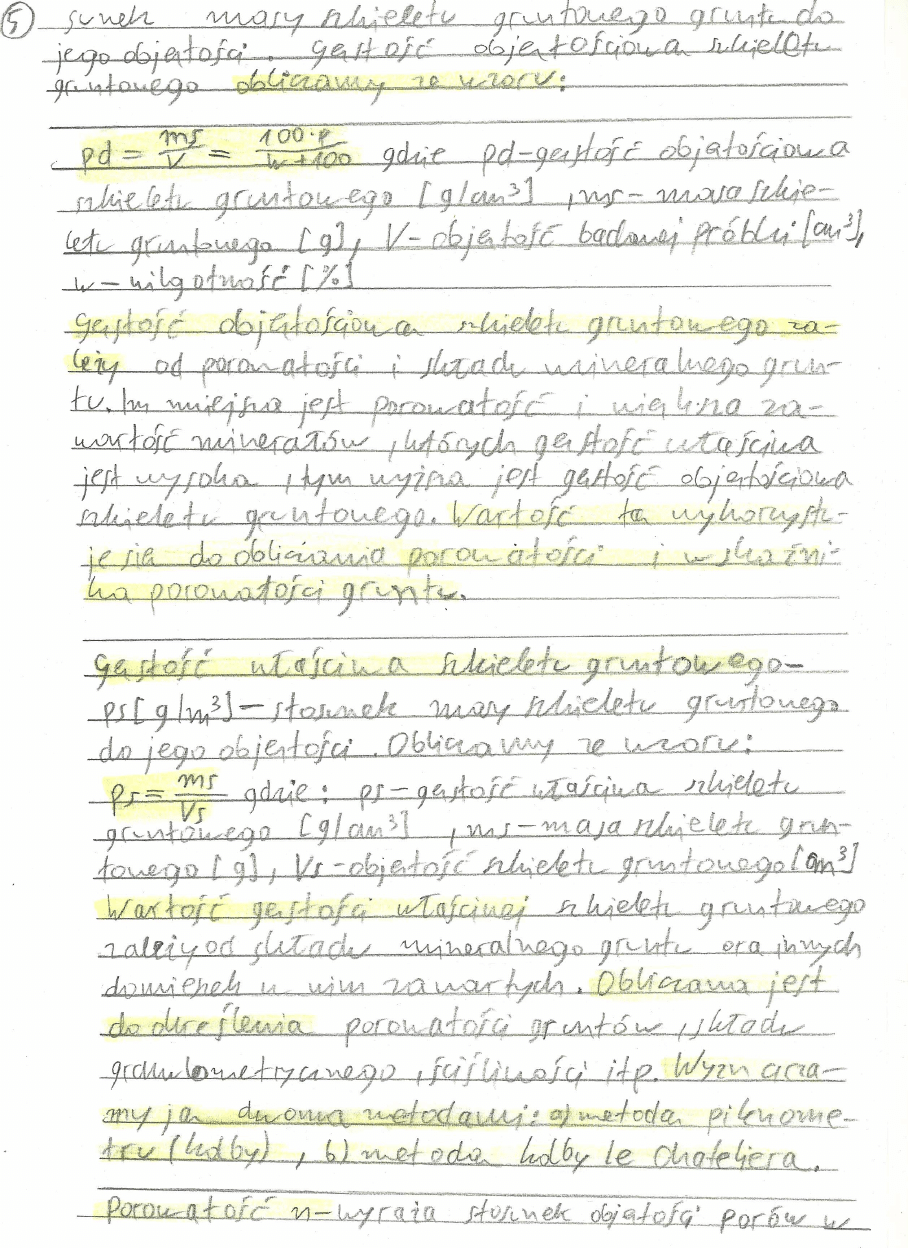 ⑤ sunek masy szkieletu gruntowego gruntu do
jego objętości. Gęstość objętościowa szkieletu
gruntowego obliczamy ze wzoru:
ρd = ms/V = 100·ρ/w+100 gdzie ρd-gęstość objętościowa
szkieletu gruntowego [g/cm³], ms-masa szkie-
letu gruntowego [g], V-objętość badanej próbki [cm³],
w-wilgotność [%]
Gęstość objętościowa szkieletu gruntowego za-
leży od porowatości i składu mineralnego grun-
tu. Im mniejsza jest porowatość i większa za-
wartość minerałów, których gęstość właściwa
jest wysoka, tym wyższa jest gęstość objętościowa
szkieletu gruntowego. Wartość ta wykorzystu-
je się do obliczania porowatości i wskaźni-
ka porowatości gruntu.
Gęstość właściwa szkieletu gruntowego-
ρs[g/m³]-stosunek masy szkieletu gruntowego
do jego objętości. Obliczamy ze wzoru:
ρs = ms/Vs gdzie: ρs-gęstość właściwa szkieletu
gruntowego [g/cm³], ms-masa szkieletu grun-
towego [g], Vs-objętość szkieletu gruntowego [cm³]
Wartość gęstości właściwej szkieletu gruntowego
zależy od składu mineralnego gruntu ora innych
domieszek w nim zawartych. Obliczana jest
do określenia porowatości gruntów, składu
granulometrycznego, ściśliwości itp. Wyznacza-
my ja dwoma metodami: a) metoda piknome-
tru (kolby), b) metoda kolby le Chateliera.
Porowatość n-wyraża stosunek objętości porów w